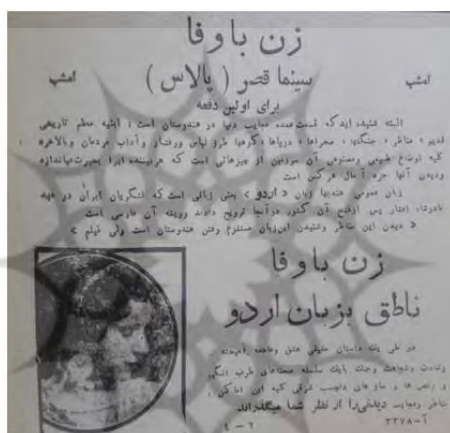 زن باوفا
امشب سینما قصر ( پالاس ) امشب
برای اولین دفعه
البته شنیده اید که قسمت عمده عجایب دنیا در هندوستان است ؛ ابنیه معظم تاریخی
قدیم ، مناظر ، جنگلها ، صحراها ، دریاها ، کوهها طرز لباس ورفتار وآداب مردمان وبالاخره
کلیه اوضاع طبیعی ومصنوعی آن سرزمین از چیزهائی است که هر بیننده ایرا بحیرت میاندازد
ودیدن آنها جزء آمال هر کس است
زبان عمومی هندیها زبان « اردو » یعنی زبانی است که لشگریان ایران در عهد
نادرشاه افشار پس از فتح آن کشور در آنجا ترویج دادند وریشه آن فارسی است
« دیدن این مناظر وشنیدن این زبان مستلزم رفتن هندوستان است ولی فیلم »
زن باوفا
ناطق بزبان اردو
در طی یک داستان حقیقی عشق وعاطفه آمیخته
وشهامت وحیات بایک سلسله صحنه‌های طرب انگیز
و رقص ها و سازهای دلچسب شرقی کلیه این اماکن ،
مناظر وعجایب دیدنی را از نظر شما میگذراند
آ-۲۲۷۸ ۲ - ٤